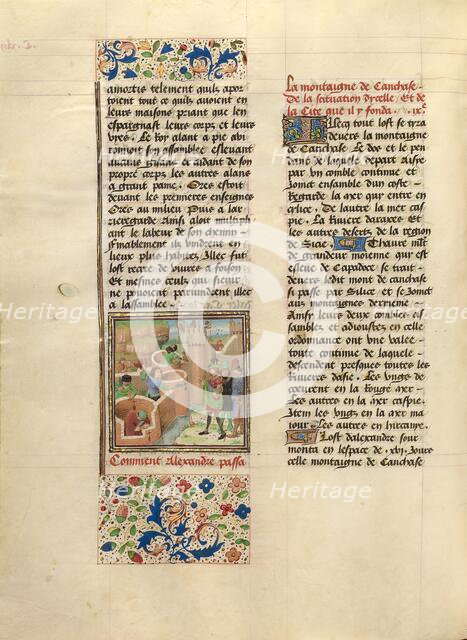 amortis telement quilz apor
toient tout ce quilz auoient en
leurs maisons priant que len
espargnast leurs corps et leurs
vies. Le Roy alant a pie abi
ronnoit son assemblee esleuant
aucuns gisans et aidant de son
propre corps les autres alans
a grant paine. Ores estoit
deuant les premieres enseignes
Ores au milieu Puis a lar
rieregarde Ainsi aloit multipli
ant le labeur de son chemin
finablement ilz vindrent en
lieux plus habitez Illec fut
lost de viures a foison
Et mesmes ceulx qui sieure
ne pouoient paruindrent illec
a lassemblee
Comment Alexandre passa
La montaigne de Cauchase
De la situation dicelle Et de
la Cite que il y fonda. .ix.e
Illec tout lost se tra
deuers la montaigne
de Cauchase Le dos et le pen
dant de laquele depart Asie
par vn comble continue et
Joint ensamble dun coste
Regarde la mer qui entre en
cilice. De lautre la mer cas
pie. La Riuiere daraxes Et
les autres desers de la region
de Sicie. Thaure mont
de grandeur moienne qui est
esleue de Capadoce se trait
deuers ledit mont de cauchase
Il passe par Silice et se Joint
aux montaignes dermenie
Ainsi leurs deux combles en
samblez et adioustez en celle
ordonnance ont vne valee
toute continue de laquele
descendent presques toutes les
Riuieres dasie. Les vngz de
coeurent en la Rouge mer
Les autres en la mer caspie.
Item les vngz en la mer ma
iour Les autres en hircanie.
Lost dalexandre sour
monta en lespace de .xvi. Jours
celle montaigne de Cauchase
Heritage
Heritage
Heritage
Heritage
Heritage